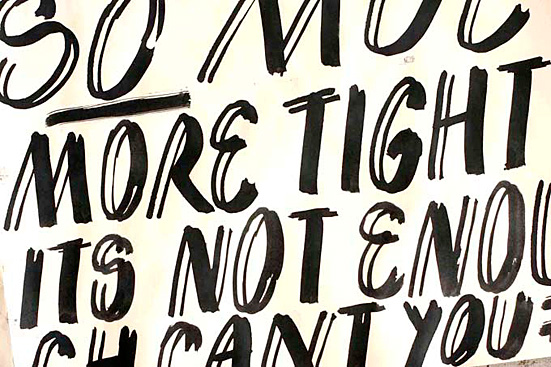 SO MUC
MORE TIGHT
ITS NOT ENOU
GH CANT YOU